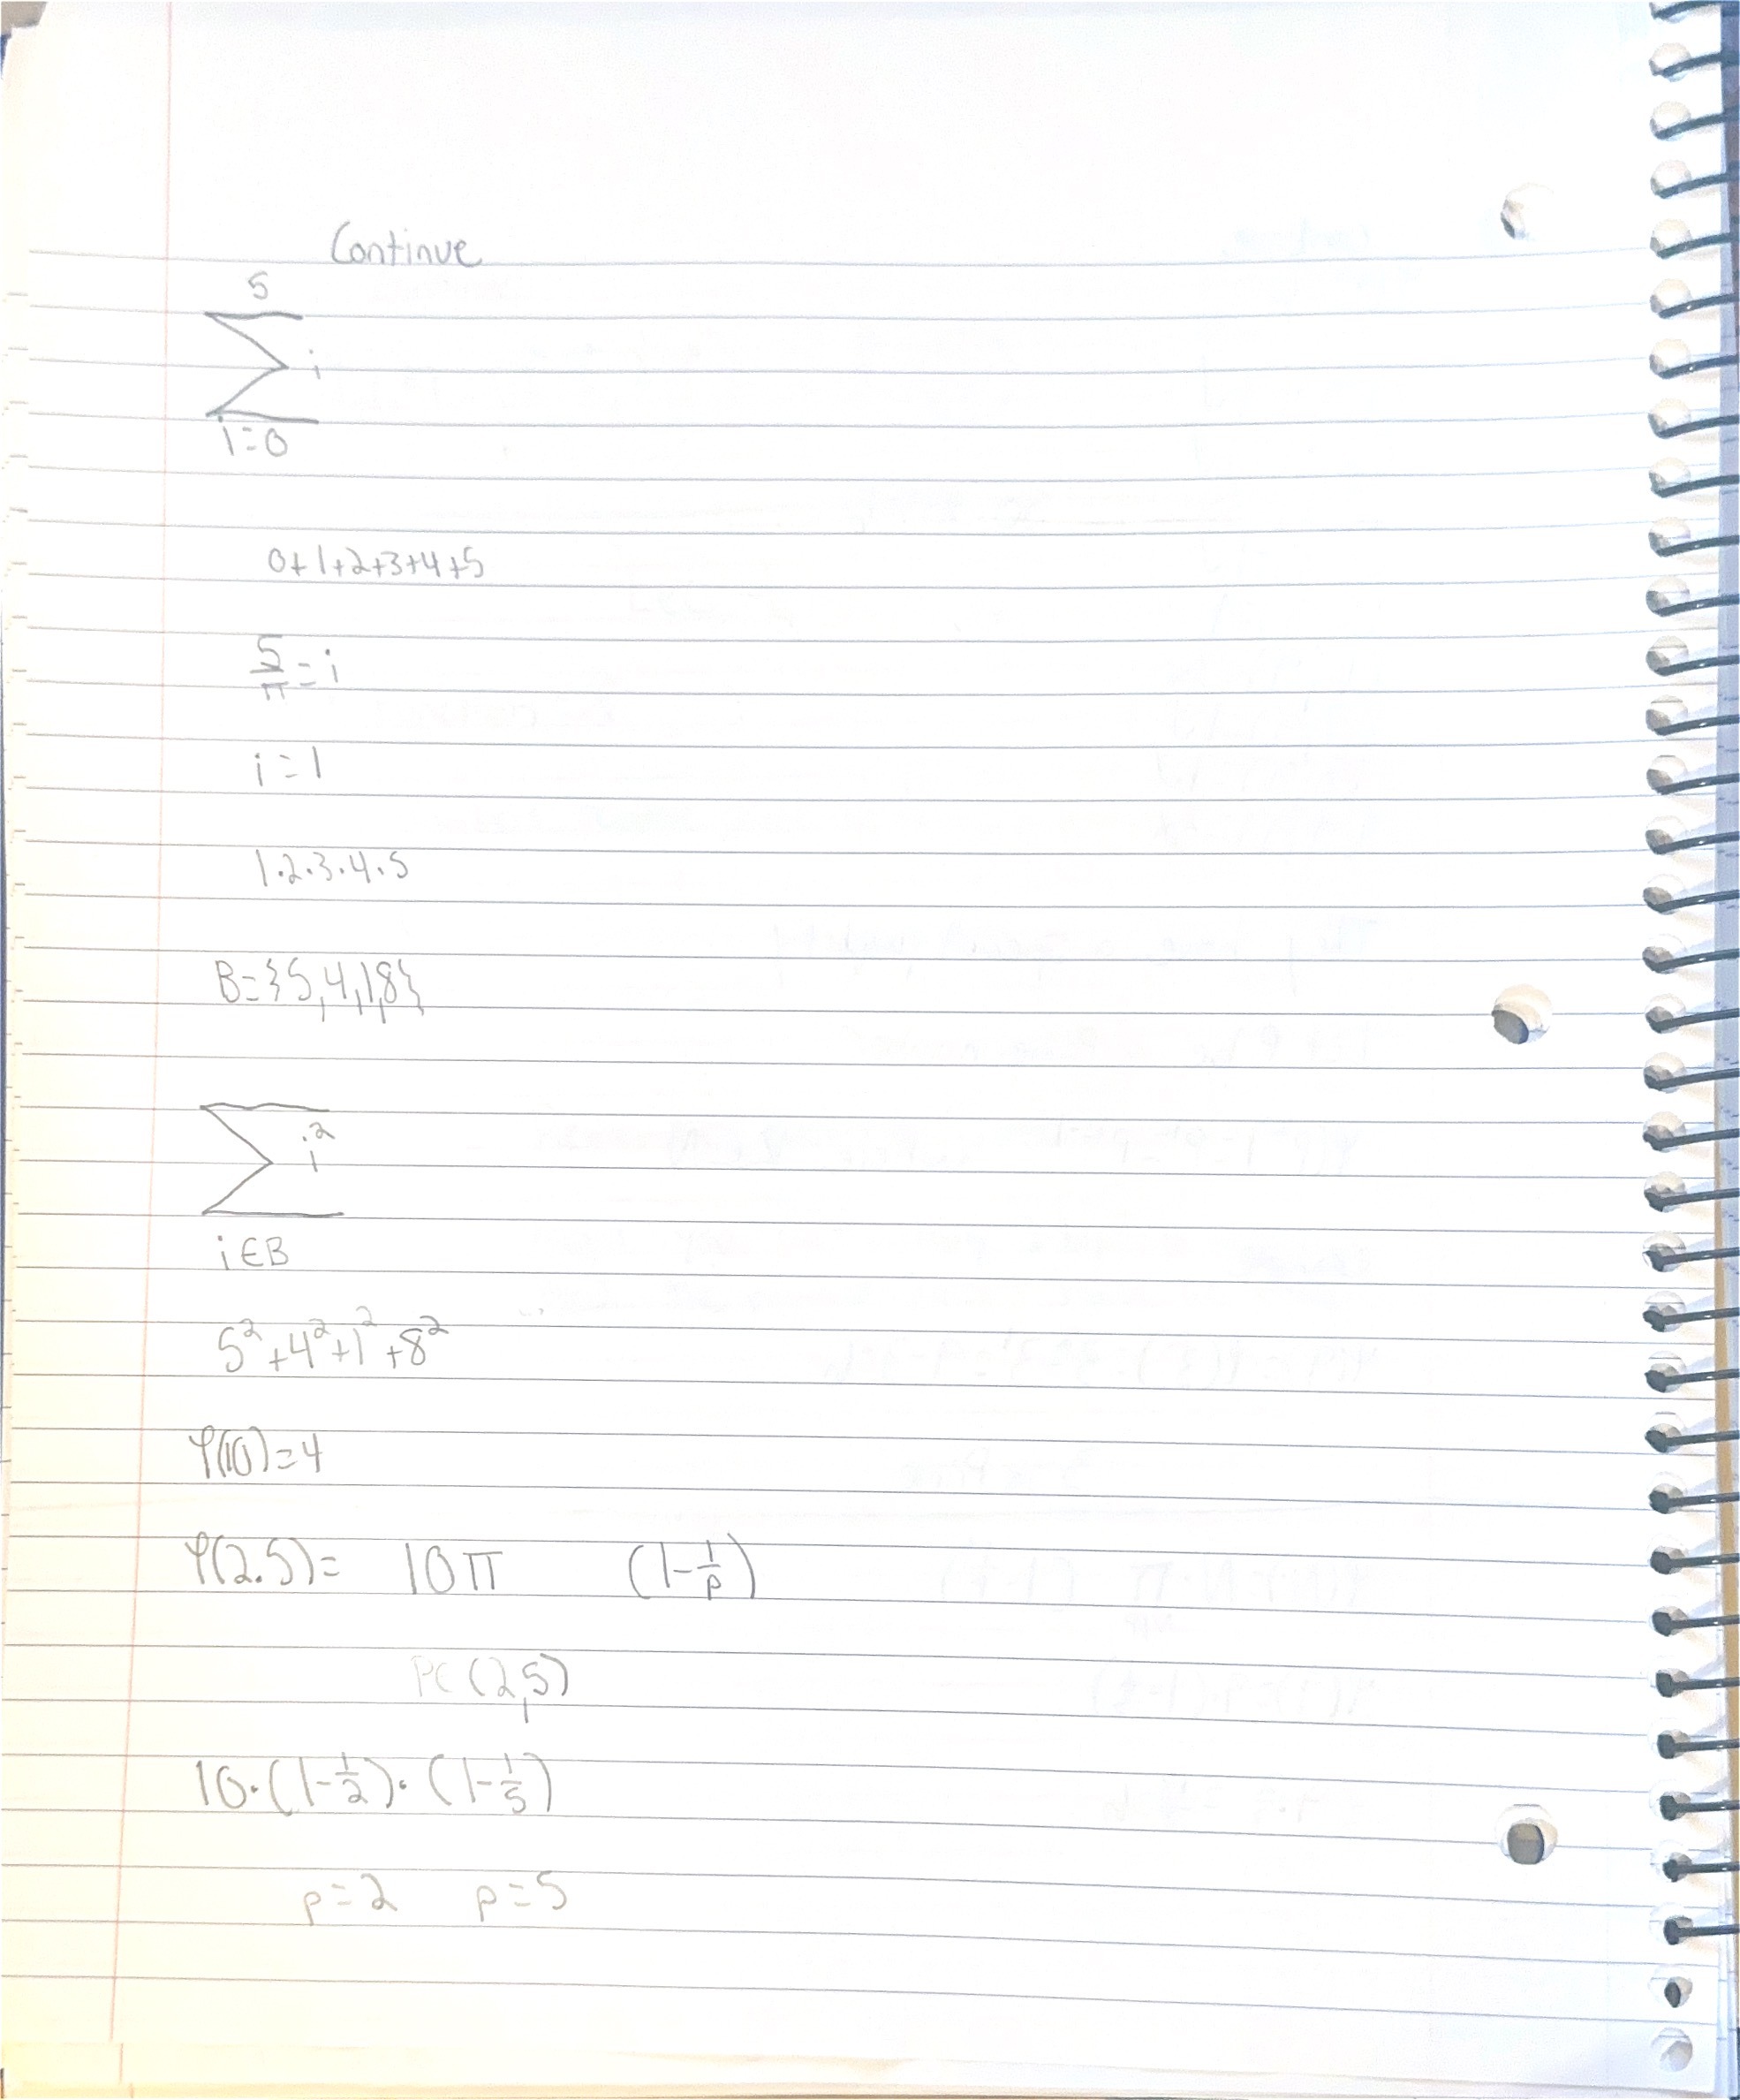 Continue
5
∑ i
i=0
0+1+2+3+4+5
5/π = i
i=1
1·2·3·4·5
B={5,4,1,8}
∑ i²
i∈B
5²+4²+1²+8²
φ(10)=4
φ(2.5)= 10π (1-1/p)
PC(2,5)
10·(1-1/2)·(1-1/5)
p=2 p=5